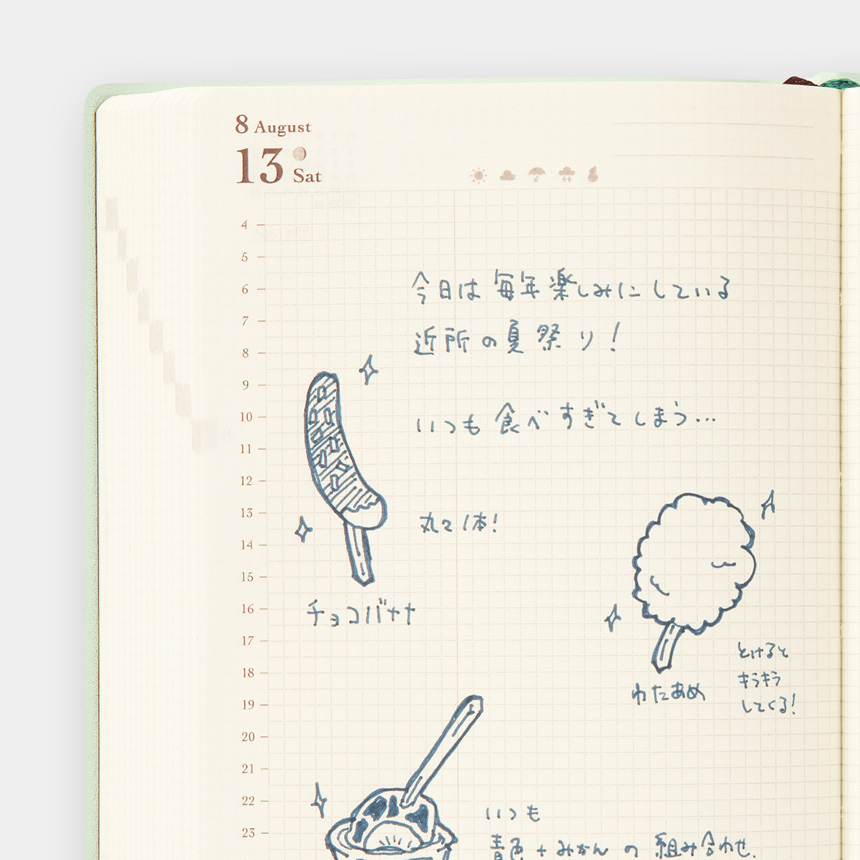 8 August
13 Sat
4
5
6
7
8
9
10
11
12
13
14
15
16
17
18
19
20
21
22
23
今日は毎年楽しみにしている
近所の夏祭り!
いつも食べすぎてしまう…
丸ごと1本!
チョコバナナ
わたあめ
とけると
キラキラ
してくる!
いつも
青色+みかんの組み合わせ。